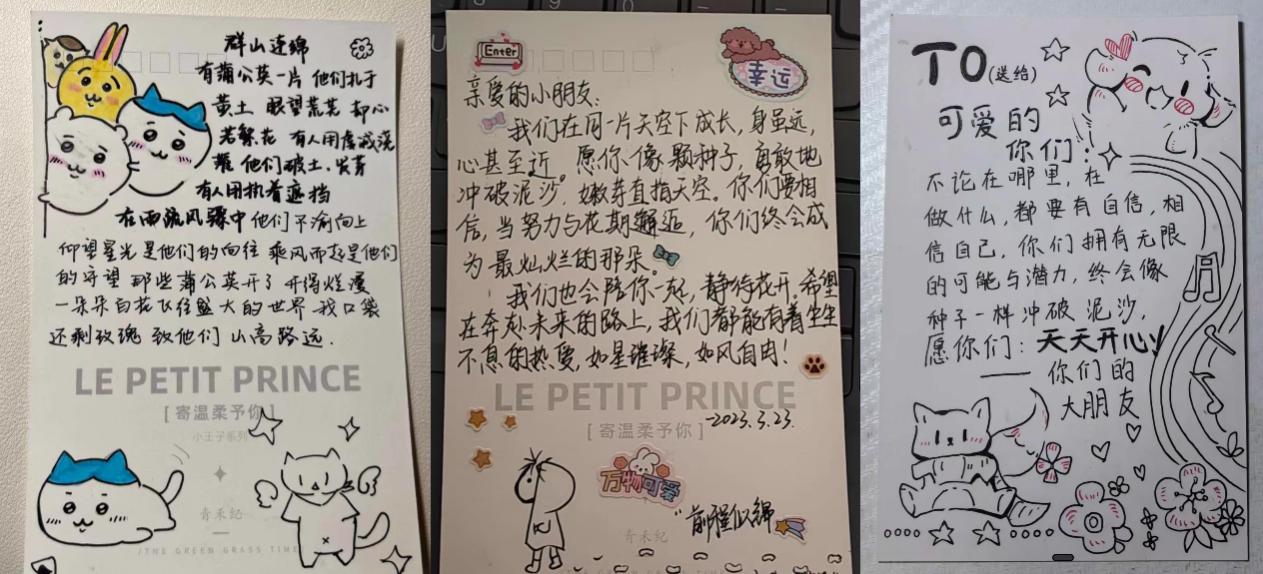 群山连绵
有蒲公英一片 他们扎于
黄土 眼望荒芜 却心
若繁花 有人用虔诚浇
灌 他们破土、发芽
有人用执着遮挡
在雨疏风骤中他们不渝向上
仰望星光是他们的向往 乘风而起是他们
的守望 那些蒲公英开了 开得烂漫
一朵朵白花飞往盛大的世界 我口袋
还剩玫瑰 致他们 山高路远.
LE PETIT PRINCE
[ 寄温柔予你 ]
小王子系列
青禾纪
/THE GREEN GRASS TIME/
Enter
幸运
亲爱的小朋友:
我们在同一片天空下成长,身虽远,
心甚至近。愿你像颗种子,勇敢地
冲破泥沙,嫩芽直指天空。你们要相
信,当努力与花期邂逅,你们终会成
为最灿烂的那朵。
我们也会陪你一起,静待花开.希望
在奔赴未来的路上,我们都能有着生生
不息的热爱,如星璀璨,如风自由!
LE PETIT PRINCE
[ 寄温柔予你 ]
2023.3.23.
万物可爱
"前程似锦
青禾纪
TO(送给)
可爱的
你们:
不论在哪里,在
做什么,都要有自信,相
信自己,你们拥有无限
的可能与潜力,终会像
种子一样冲破泥沙,
愿你们:天天开心!
——你们的
大朋友